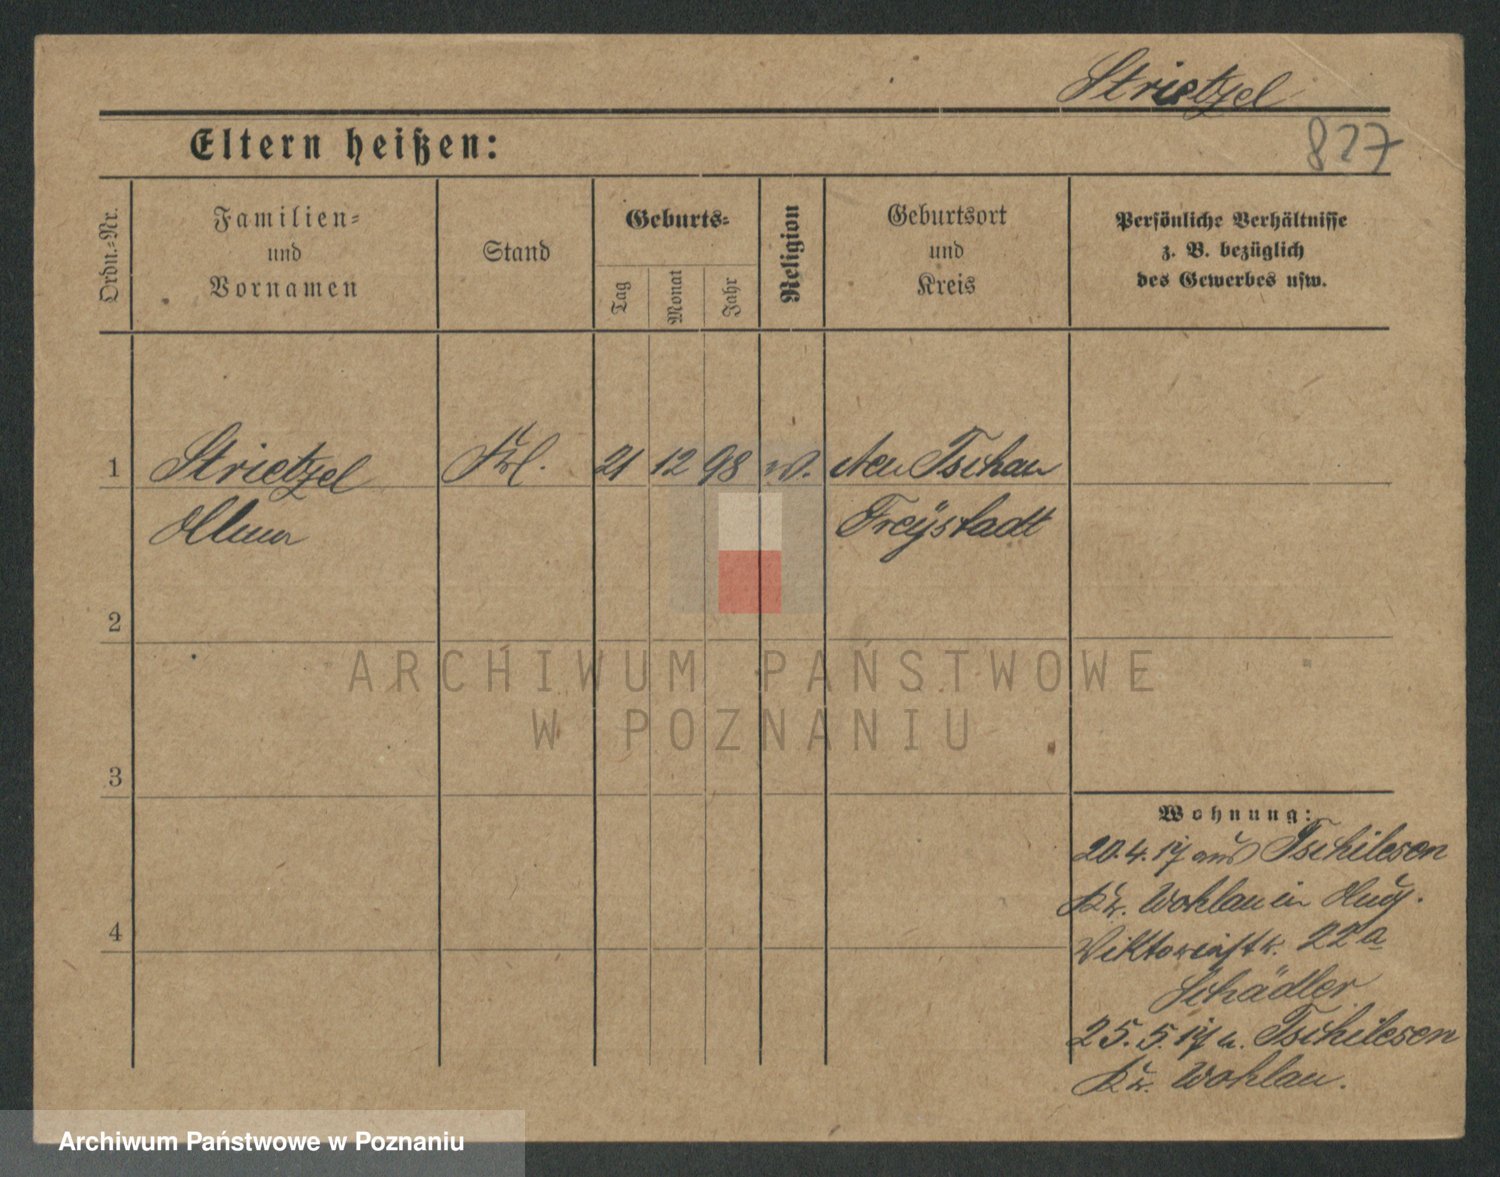 Strietzel
827
Eltern heißen:
Ordn.-Nr.
Familien-
und
Vornamen
Stand
Geburts-
Tag
Monat
Jahr
Religion
Geburtsort
und
Kreis
Persönliche Verhältnisse
z. B. bezüglich
des Gewerbes usw.
1 Strietzel Frl. 21 12 98 Neu Tschau
Freÿstadt
2
3
4
Wohnung:
20.4.17 aus Tschilesen
Kr. Wohlau in
Viktoriastr. 22a
Schädler
25.5.17 n. Tschilesen
Kr. Wohlau.
ARCHIWUM PAŃSTWOWE
W POZNANIU
Archiwum Państwowe w Poznaniu